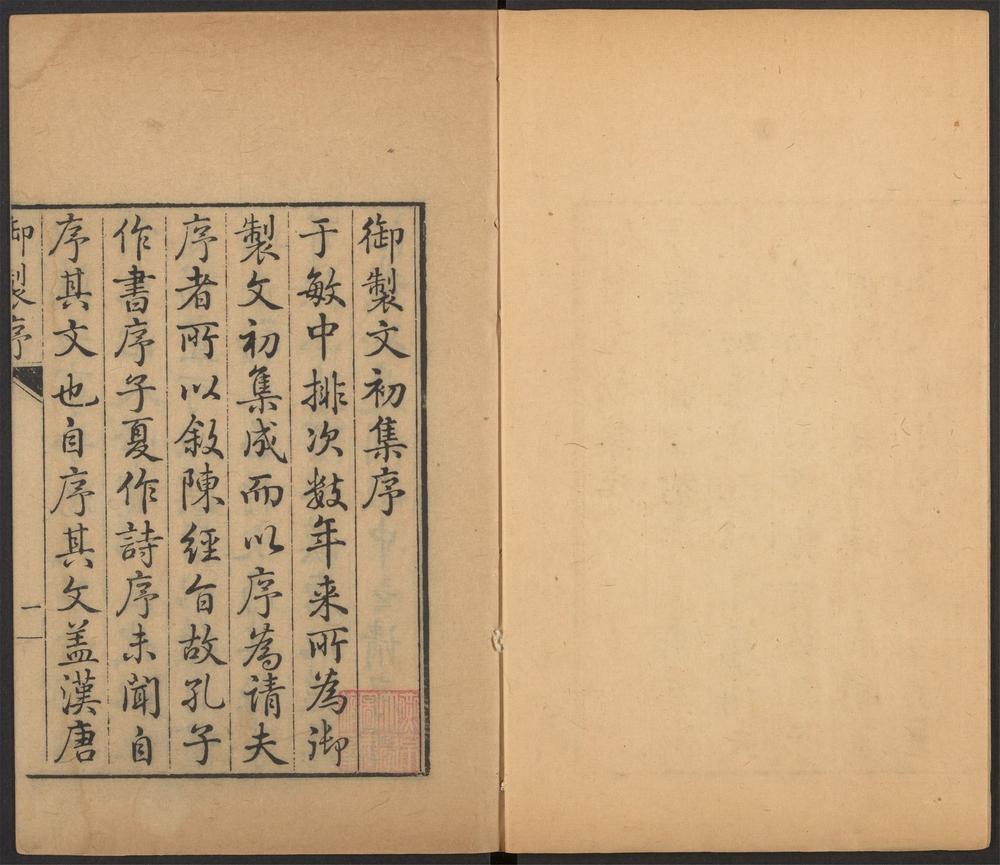 御製文初集序
于敏中排次数年来所為御
製文初集成而以序為请夫
序者所以敘陳經旨故孔子
作書序子夏作詩序未聞自
序其文也自序其文盖漢唐
御製序
一